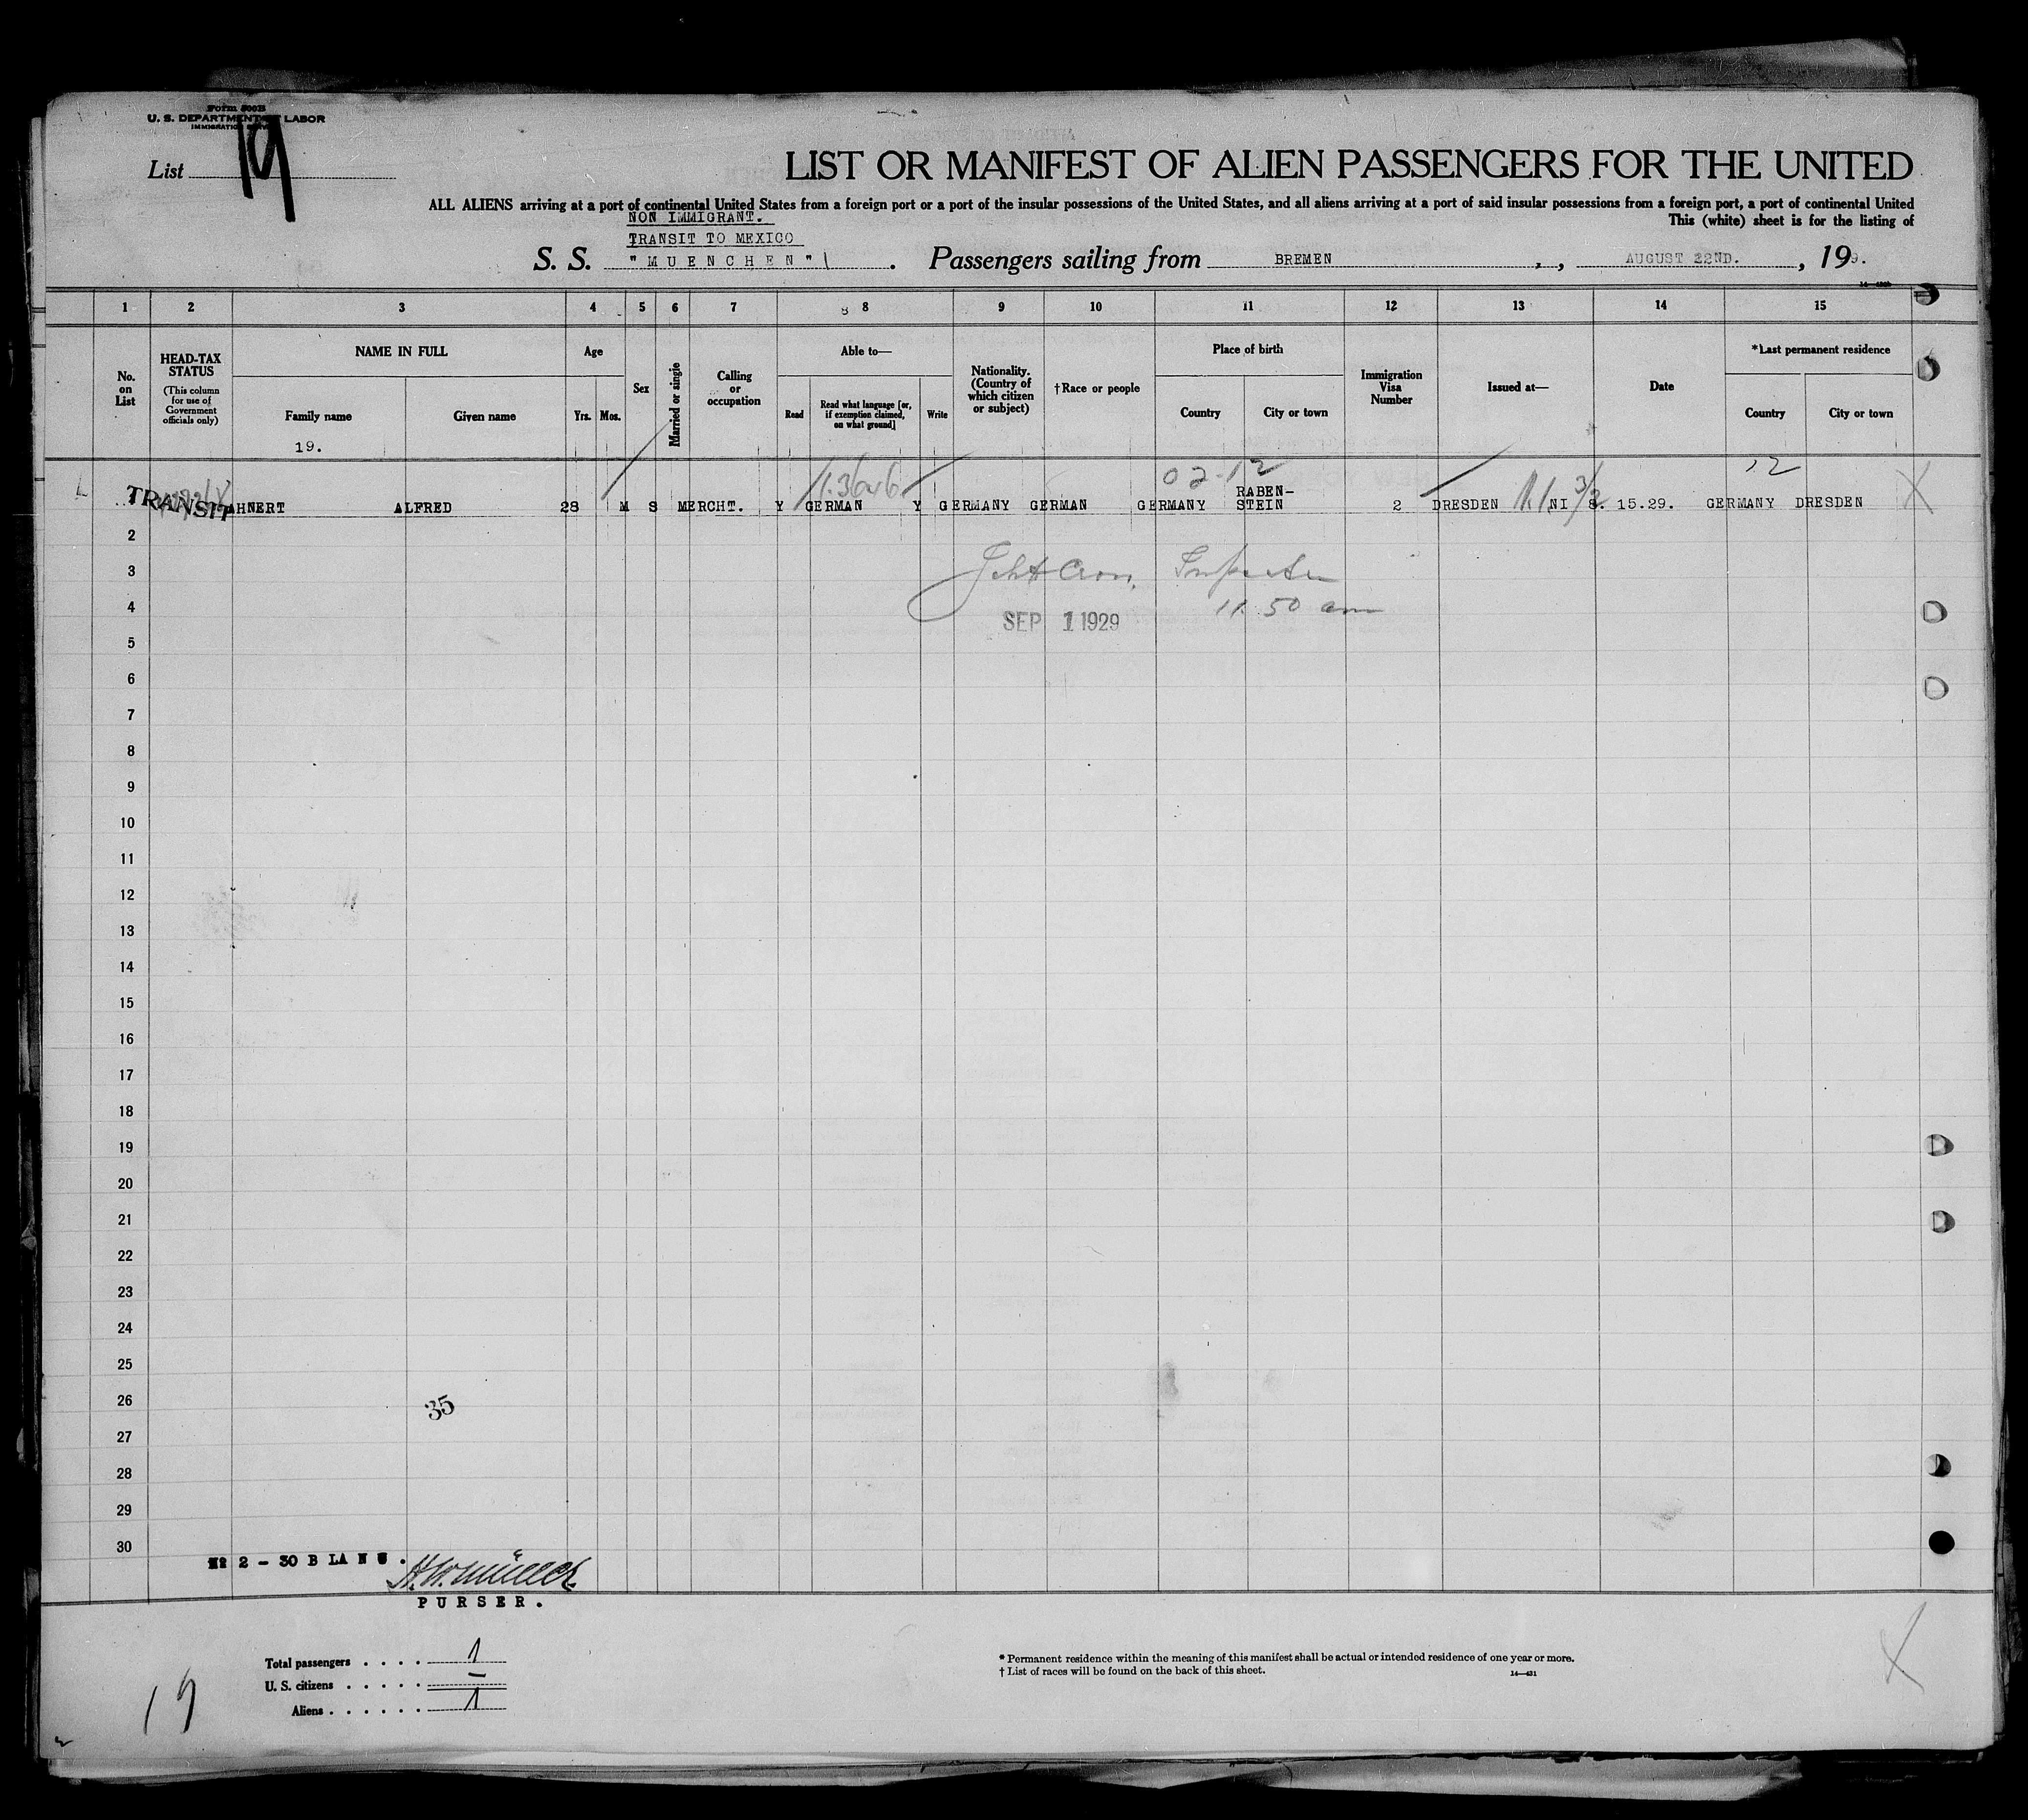 Form 500B
U. S. DEPARTMENT OF LABOR
IMMIGRATION SERVICE
List 19
LIST OR MANIFEST OF ALIEN PASSENGERS FOR THE UNITED
ALL ALIENS arriving at a port of continental United States from a foreign port or a port of the insular possessions of the United States, and all aliens arriving at a port of said insular possessions from a foreign port, a port of continental United
This (white) sheet is for the listing of
NON IMMIGRANT.
TRANSIT TO MEXICO
S. S. "MUENCHEN". Passengers sailing from BREMEN, AUGUST 22ND., 19 9.
1 2 3 4 5 6 7 8 8 9 10 11 12 13 14 15
No. on List
HEAD-TAX STATUS
(This column for use of Government officials only)
NAME IN FULL
Family name
Given name
Age
Yrs. Mos.
Sex
Married or single
Calling or occupation
Able to—
Read
Read what language [or, if exemption claimed, on what ground]
Write
Nationality. (Country of which citizen or subject)
†Race or people
Place of birth
Country
City or town
Immigration Visa Number
Issued at—
Date
*Last permanent residence
Country
City or town
19.
02-12
12
1 TRANSIT AHNERT ALFRED 28 M S MERCHT. Y GERMAN Y GERMANY GERMAN GERMANY RABEN-STEIN 2 DRESDEN NI 8. 15.29. GERMANY DRESDEN X
2
3
Inspector
4
11.50 am
SEP 1 1929
5
6
7
8
9
10
11
12
13
14
15
16
17
18
19
20
21
22
23
24
25
26
35
27
28
29
30
2 - 30 BLANC.
H. W. Müller
PURSER.
Total passengers . . . . 1
U. S. citizens . . . . . —
Aliens . . . . . . 1
* Permanent residence within the meaning of this manifest shall be actual or intended residence of one year or more.
† List of races will be found on the back of this sheet.
14—431
19
X